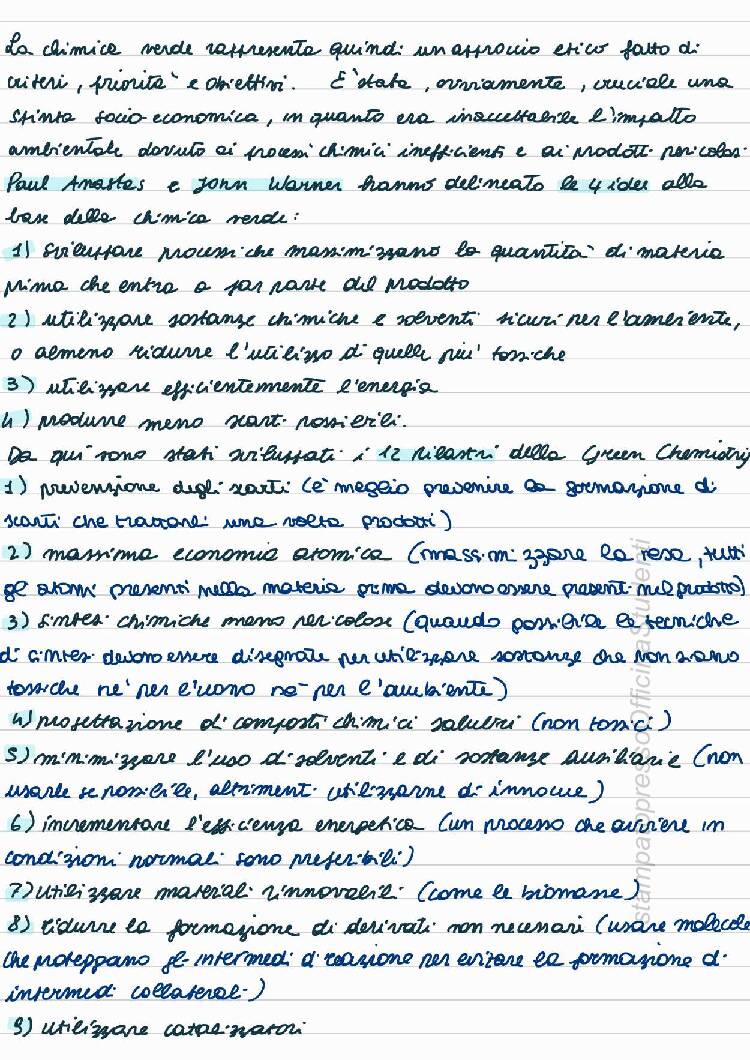 La chimica verde rappresenta quindi un approccio etico fatto di
criteri, priorità e obiettivi. È stata, ovviamente, cruciale una
spinta socio-economica, in quanto era inaccettabile l'impatto
ambientale dovuto ai processi chimici inefficienti e ai prodotti pericolosi.
Paul Anastas e John Warner hanno delineato le 4 idee alla
base della chimica verde:
1) sviluppare processi che massimizzano la quantità di materia
prima che entra a far parte del prodotto
2) utilizzare sostanze chimiche e solventi sicuri per l'ambiente,
o almeno ridurre l'utilizzo di quelle più tossiche
3) utilizzare efficientemente l'energia
4) produrre meno scarti possibili.
Da qui sono stati sviluppati i 12 pilastri della Green Chemistry
1) prevenzione degli scarti (è meglio prevenire la formazione di
scarti che trattarli una volta prodotti)
2) massima economia atomica (massimizzare la resa, tutti
gli atomi presenti nella materia prima devono essere presenti nel prodotto)
3) sintesi chimiche meno pericolose (quando possibile le tecniche
di sintesi devono essere disegnate per utilizzare sostanze che non siano
tossiche né per l'uomo né per l'ambiente)
4) progettazione di composti chimici salubri (non tossici)
5) minimizzare l'uso di solventi e di sostanze ausiliarie (non
usarle se possibile, altrimenti utilizzarne di innocue)
6) incrementare l'efficienza energetica (un processo che avviene in
condizioni normali sono preferibili)
7) utilizzare materiali rinnovabili (come le biomasse)
8) ridurre la formazione di derivati non necessari (usare molecole
che proteggano gli intermedi di reazione per evitare la formazione di
intermedi collaterali)
9) utilizzare catalizzatori
stampato presso OfficinaStudenti